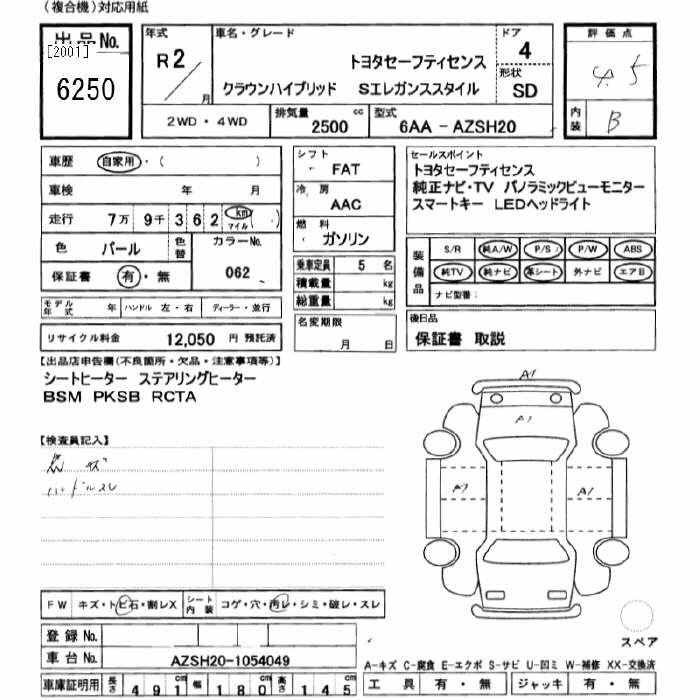 (複合機)対応用紙
出品No.
[2001]
6250
年式
R 2
月
車名・グレード
トヨタセーフティセンス
クラウンハイブリッド Sエレガンススタイル
ドア
4
形状
SD
評価点
4.5
内装
B
2WD・4WD
排気量
2500
cc
型式
6AA - AZSH20
車歴
自家用・( )
車検 年 月
走行 7万 9千 3 6 2 km マイル ( )
色 パール 色替
カラーNo.
062
保証書 有・無
シフト
FAT
冷房
AAC
燃料
ガソリン
乗車定員 5 名
積載量 kg
総重量 kg
セールスポイント
トヨタセーフティセンス
純正ナビ・TV パノラミックビューモニター
スマートキー LEDヘッドライト
装備品
S/R 純A/W P/S P/W ABS
純TV 純ナビ 革シート 外ナビ エアB
ナビ型番:
モデル年式 年 ハンドル 左・右 ディーラー・並行
リサイクル料金 12,050 円 預託済
名変期限
月 日
後日品
保証書 取説
【出品店申告欄(不良箇所・欠品・注意事項等)】
シートヒーター ステアリングヒーター
BSM PKSB RCTA
【検査員記入】
ハンドルスレ
A1
A1
A1
A1
FW キズ・トビ石・割レX
シート内装 コゲ・穴・汚レ・シミ・破レ・スレ
登録No.
車台No. AZSH20-1054049
スペア
A-キズ C-腐食 E-エクボ S-サビ U-凹ミ W-補修 XX-交換済
車庫証明用 長さ 491cm 幅 180cm 高さ 145cm
工具 有・無 ジャッキ 有・無